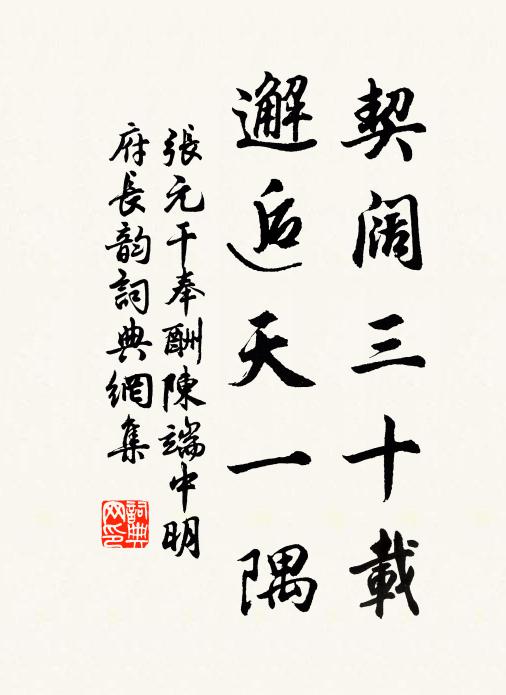 契阔三十載
邂逅天一隅
張元干奉酬陳端中明
府長韵詞典網集
詞典
网印